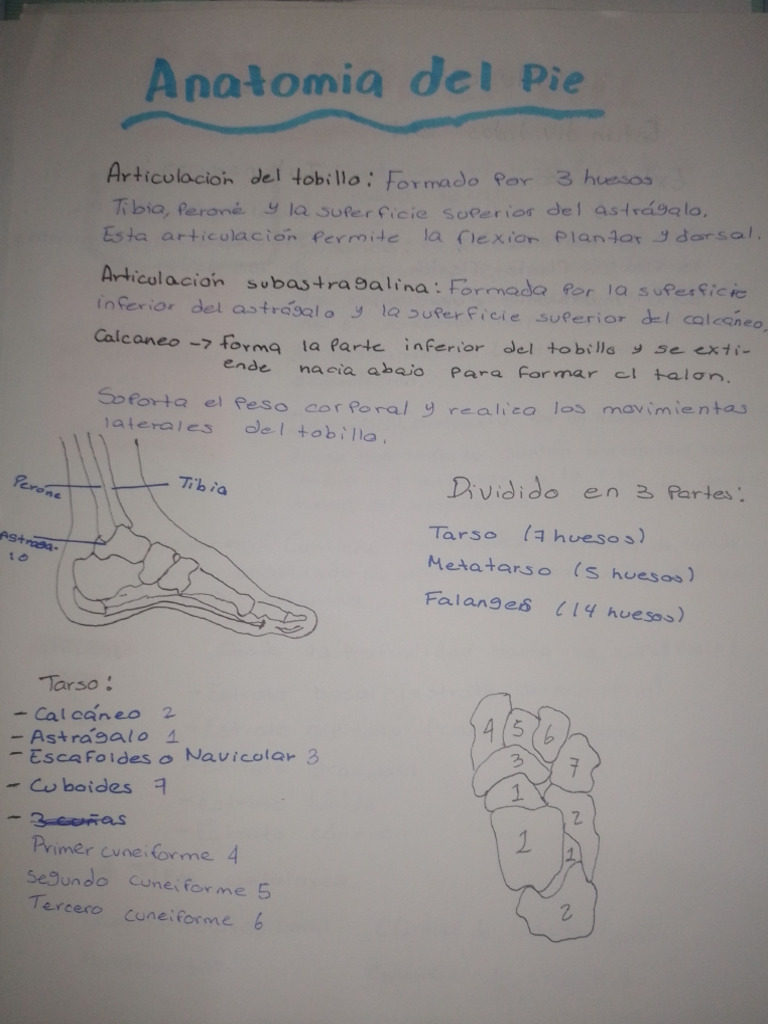 Anatomia del Pie
Articulación del tobillo: Formado por 3 huesos
Tibia, Peroné y la superficie superior del astrágalo.
Esta articulación permite la flexion plantar y dorsal.
Articulación subastragalina: Formada por la superficie
inferior del astrágalo y la superficie superior del calcáneo.
Calcaneo -> forma la parte inferior del tobillo y se exti-
ende hacia abajo para formar el talon.
Soporta el peso corporal y realica los movimientas
laterales del tobillo.
Perone
Tibia
Astraga-
lo
Dividido en 3 Partes:
Tarso (7 huesos)
Metatarso (5 huesos)
Falanges (14 huesos)
Tarso:
- Calcáneo 2
- Astrágalo 1
- Escafoides o Navicular 3
- Cuboides 7
- 3 cuñas
Primer cuneiforme 4
Segundo cuneiforme 5
Tercero cuneiforme 6
4 5 6
3 7
1 2
1 1
2